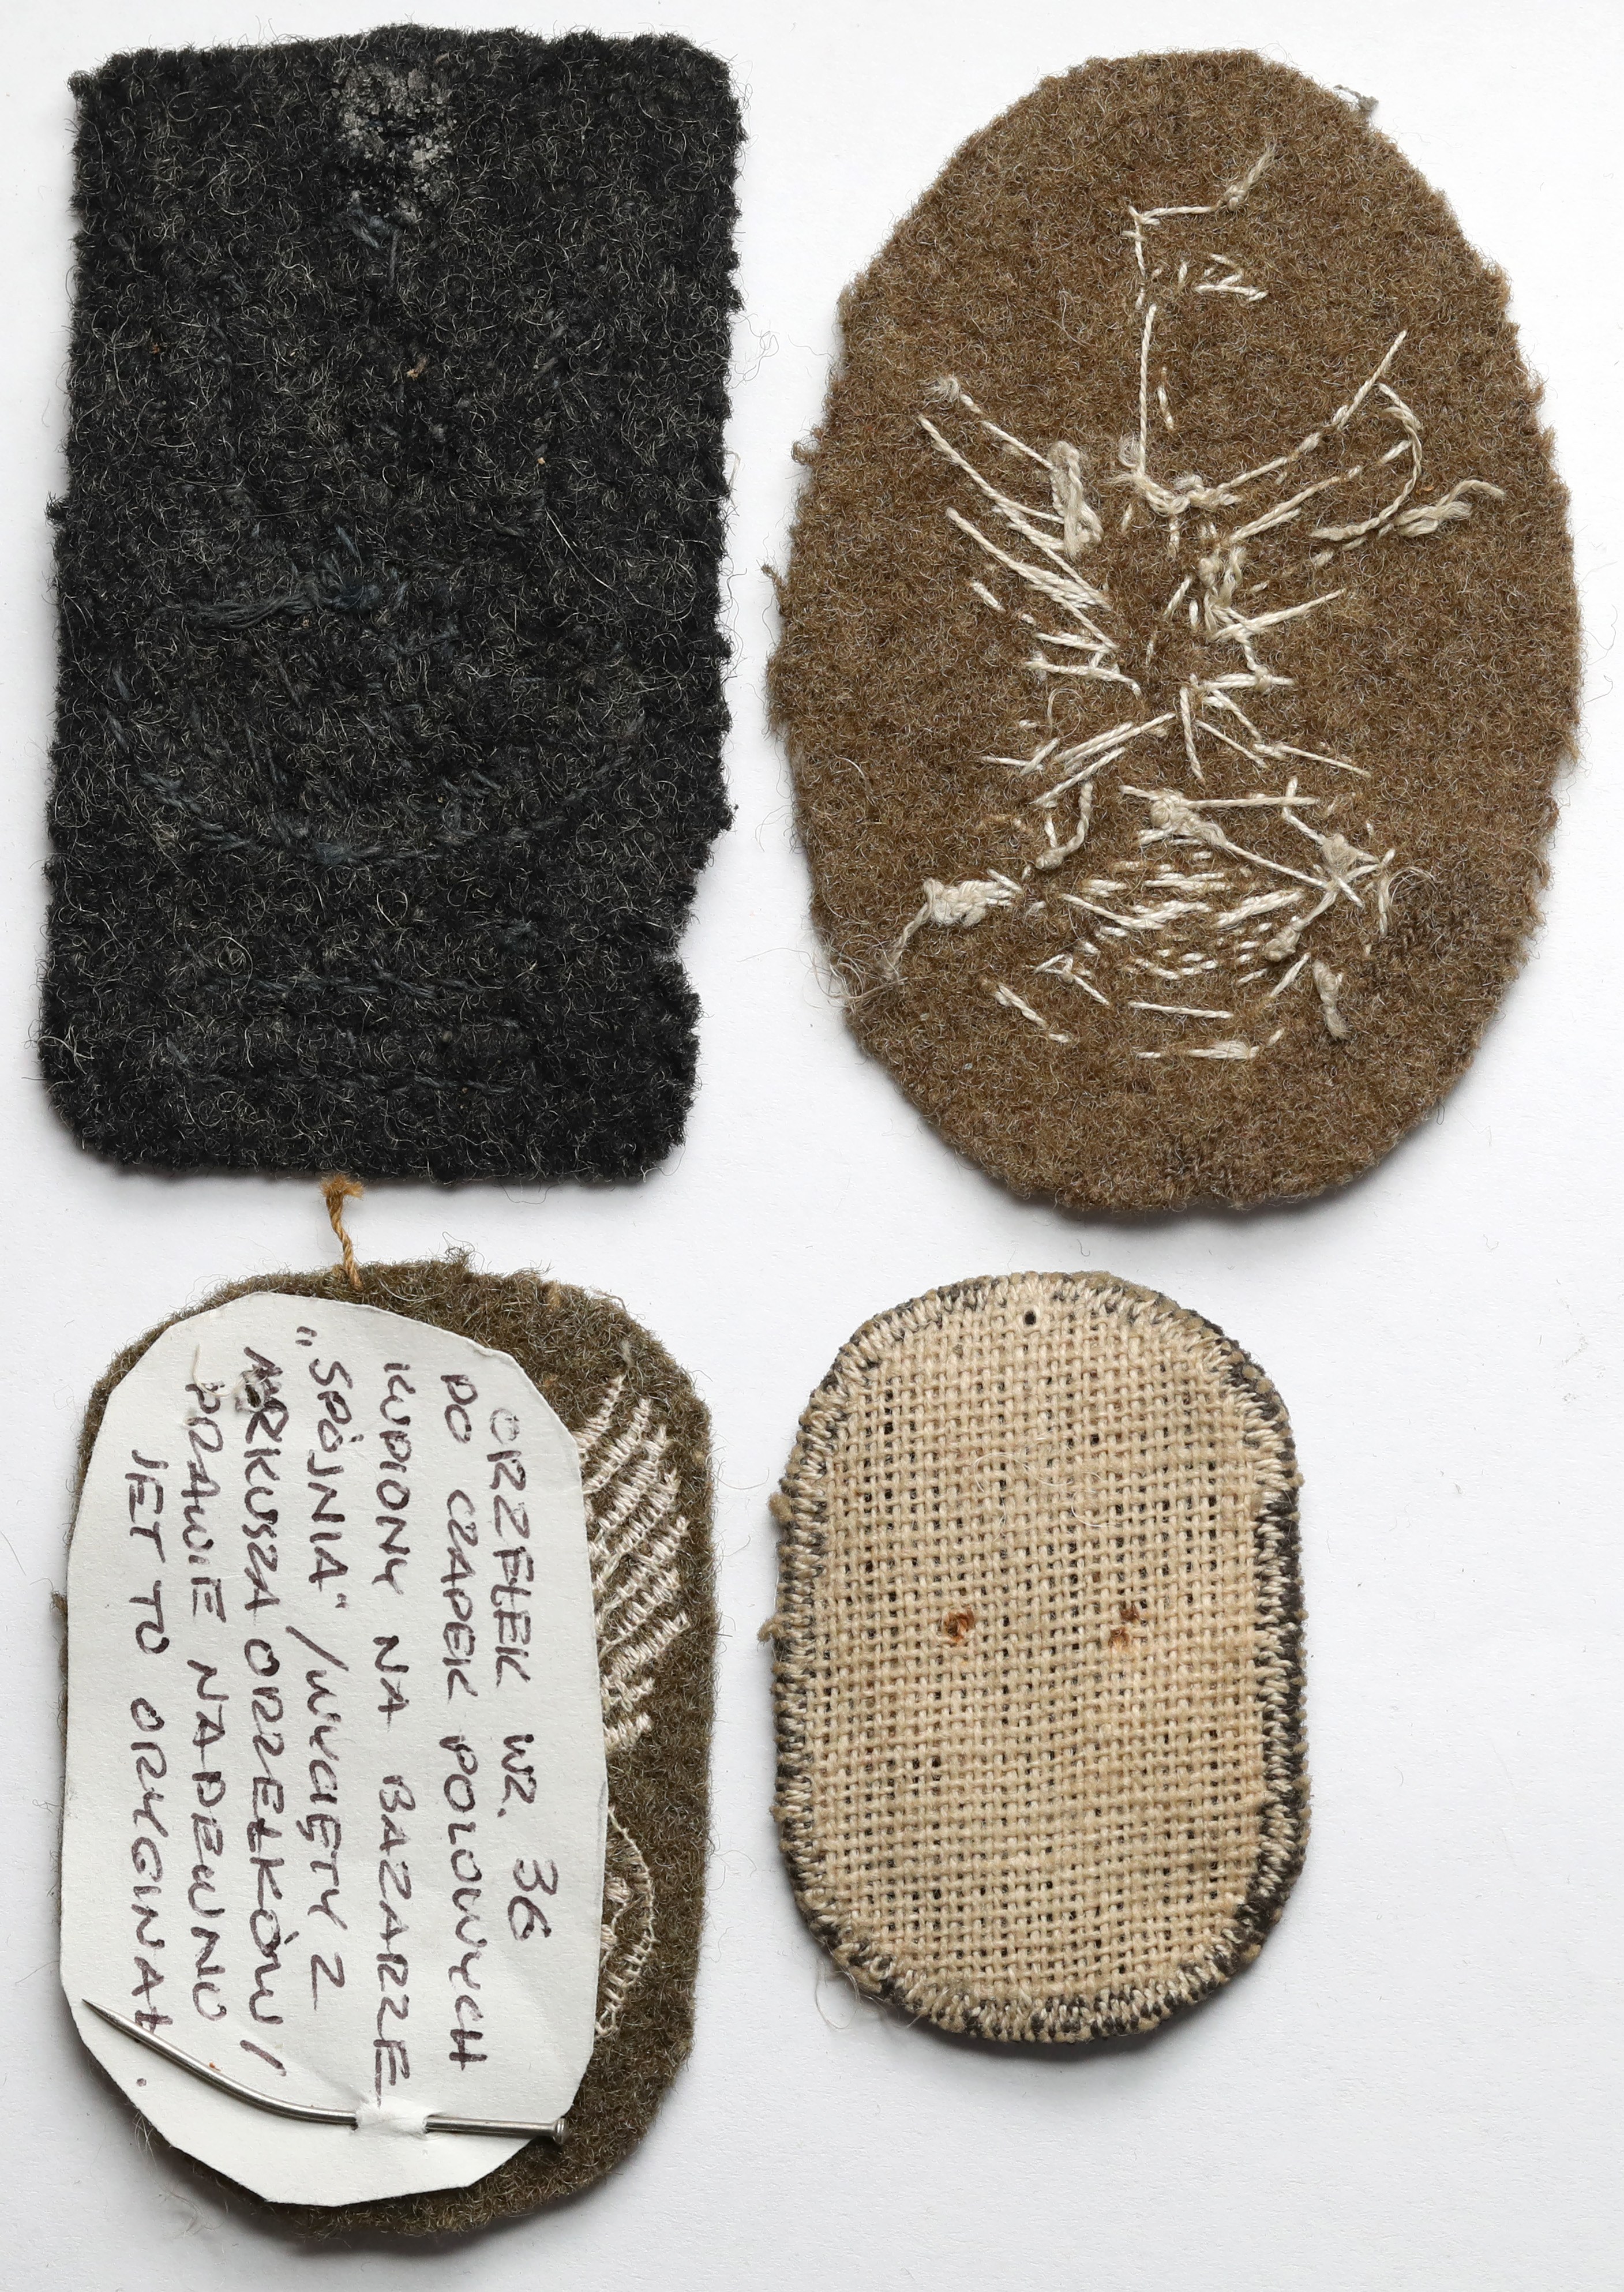 ORZEŁEK WZ. 36
DO CZAPEK POLOWYCH
KUPIONY NA BAZARZE
"SPÓJNIA" /WYCIĘTY Z
ARKUSZA ORZEŁKÓW/
PRAWIE NAPEWNO
JET TO ORYGINAŁ.